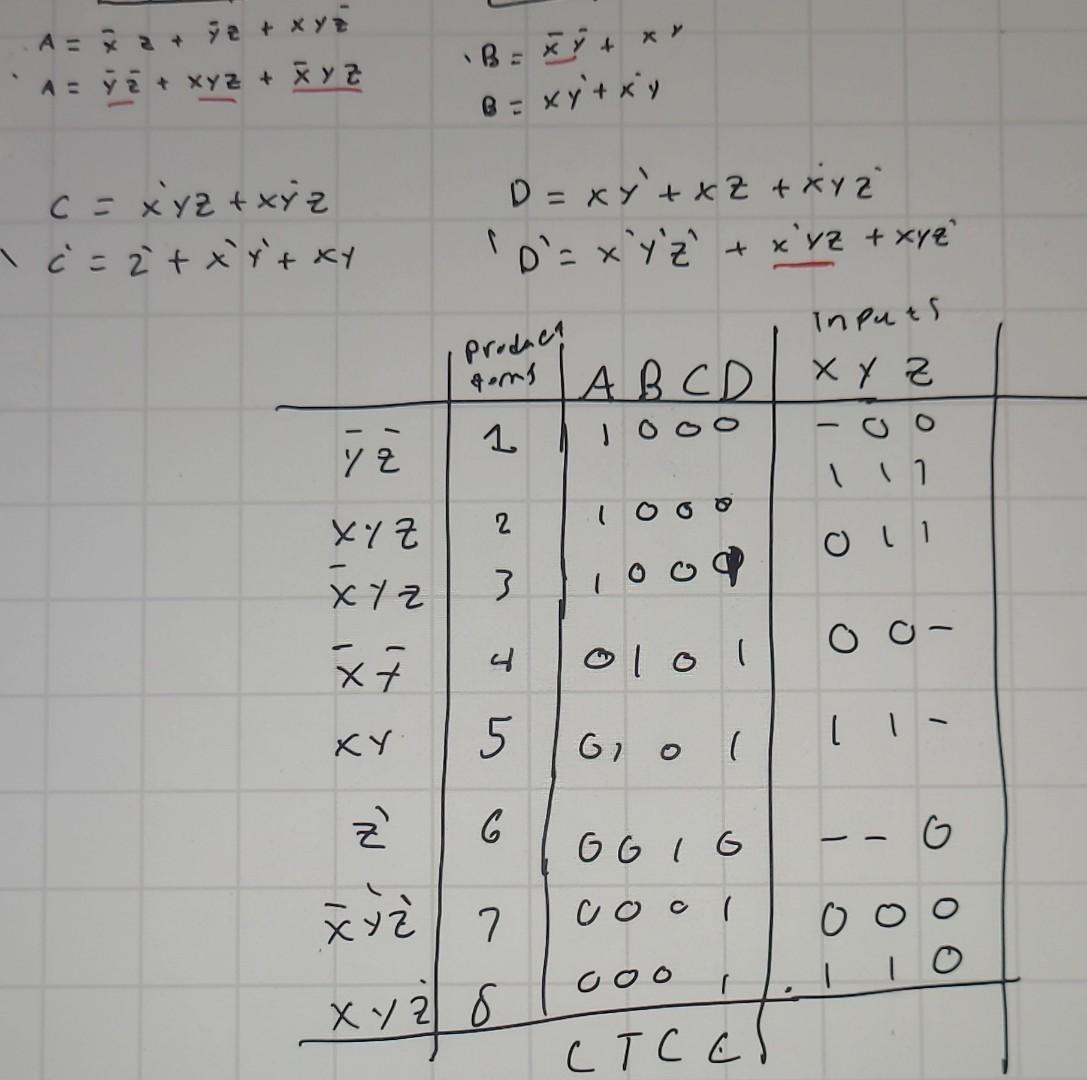 A = x̄ z + ȳ z + x y z̄
A = ȳ z̄ + x y z + x̄ y z
B = x̄ ȳ + x y
B = x y' + x' y
C = x' y z + x y' z
C' = z' + x' y' + x y
D = x y' + x z + x' y z'
D' = x' y' z' + x' y z + x y z'
Product terms A B C D inputs X Y Z
ȳ z̄ 1 1 0 0 0 - 0 0
x y z 2 1 0 0 0 1 1 1
x̄ y z 3 1 0 0 0 1 1
x̄ ȳ 4 0 1 0 1 0 0 -
x y 5 0 1 0 1 1 1 -
z' 6 0 0 1 0 - - 0
x̄ y' z' 7 0 0 0 1 0 0 0
x y z' 8 0 0 0 1 1 1 0
C T C C